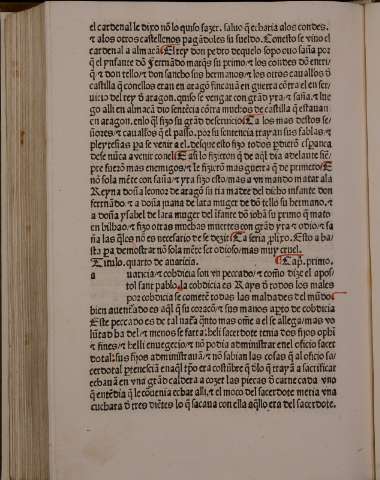 el cardenal le dixo nõ lo quiso fazer. saluo q̃ echaria alos condes.
τ alos otros castellenos pagãdoles su sueldo. Conesto se vino el
cardenal a almacã El rey don pedro dequelo sopo ouo saña por
q̃ el ynfante dõ Fernãdo marq̃s su primo τ los condes dõ enrri
q̃ τ don tello τ don sancho sus hermanos τ los otros cauallos đ
castilla q̃ conellos eran en aragõ fincauã en guerra cõtra el en ser
uicio del rey đ aragon. quiso se vengar con grãd yra τ saña. τ lue
go alli en almacã dio sentẽcia cõtra muchos de castilla q̃ estauan
en aragon. enlo q̃l fizo su grãd deseruicio Ca los mas destos se
ñores τ cauallos q̃ el passo. por su sentencia trayan sus fablas τ
pleytesias pa se venir a el. desque esto fizo todos pdierõ esperança
dese nũca a venir conel E asi lo fizieron q̃ de aq̃l dia adelante siẽ
pre fuerõ mas enemigos τ le fizierõ mas guerra q̃ de primero E
nõ sola mẽte con saña τ yra fizo esto mas avn mando matar ala
Reyna doña leonor de aragõ su tia madre del dicho infante don
fernãdo. τ a doña juana de lara muger de dõ tello su hermano. τ
a doña ysabel de lara muger del ĩfante dõ johã su primo q̃ mato
en bilbao. τ fizo otras muchas muertes con grãd yra τ odio τ sa
ña las q̃les nõ es necesario de se dezir Ca seria plixo. Esto a ba
sta pa demostrar nõ sola mẽte ser sañoso. mas muy cruel.
Titulo. quarto de auaricia. Cap. primo.
a uaricia τ cobdicia son vn peccado τ como dize el apos
tol sant pablo. la cobdicia es Rays đ todos los males
por cobdicia se comete todas las maldades del mũdo
bien auenturado es aq̃l q̃ su coraçõ τ sus manos apto de cobdicia
Este peccado es de tal natã q̃nto mas ome a el se allega mas vo
lũtad ha del τ menos se farta. heli sacerdote tenia dos fijos ophi
τ fines τ helli enuegecio τ nõ podia administrar enel oficio sacer
dotal. sus fijos administrauã τ nõ sabian las cosas q̃ al oficio sa
cerdotal ptenescia enaq̃l tp̃o era costũbre q̃ đlo q̃ trayã a sacrificar
echauã en vna grãd caldera a cozer las pieças đ carne cada vno
q̃ entẽdia q̃ le cõuenia echar alli. τ el moço del sacerdote metia vna
cuchara đ tres diẽtes lo q̃ sacaua con ella aq̃llo era del sacerdote.